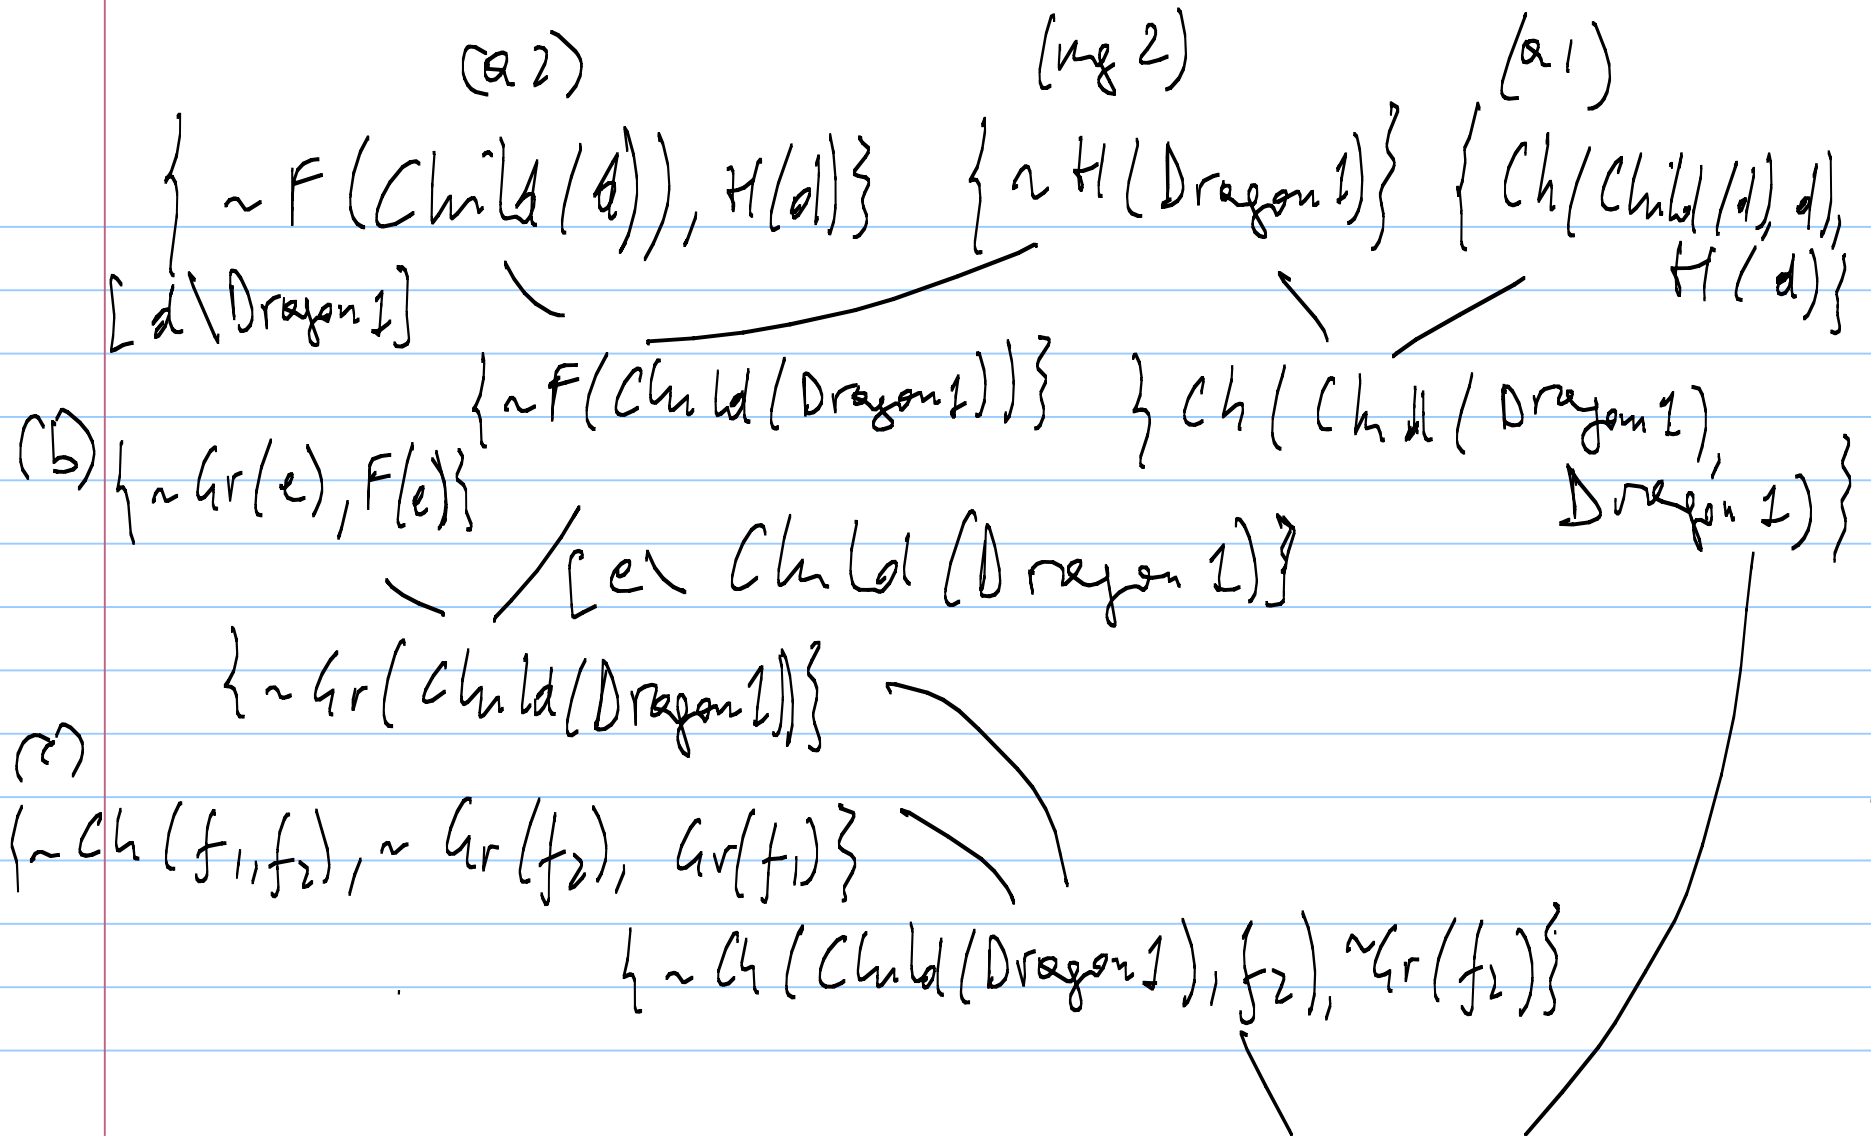 (a2) (ng 2) (a1)
{ ~ F (Child(d)), H(d)} { ~ H(Dragon1)} { Ch(Child(d), d),
H(d)}
[d\Dragon1]
{~F(Child(Dragon1))} { Ch(Child(Dragon1),
Dragon1)}
(b) {~Gr(e), F(e)}
[e\ Child(Dragon1)]
{~Gr(Child(Dragon1))}
(c)
{~Ch(f₁,f₂), ~Gr(f₂), Gr(f₁)}
{~Ch(Child(Dragon1), f₂), ~Gr(f₂)}